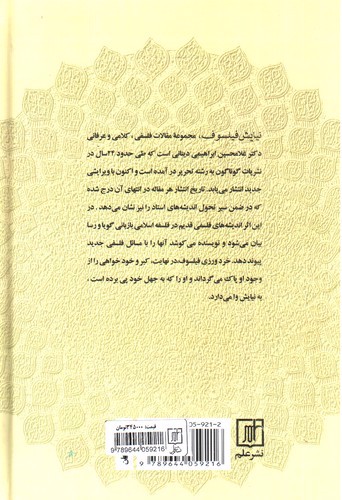 نیایش فیلسوف، مجموعهٔ مقالات فلسفی، کلامی و عرفانی
دکتر غلامحسین ابراهیمی دینانی است که طی حدود ۲۲ سال در
نشریات گوناگون به رشته تحریر در آمده است و اکنون با ویرایشی
جدید انتشار می‌یابد. تاریخ انتشار هر مقاله در انتهای آن درج شده
که در ضمن سیر تحول اندیشه‌های استاد را نیز نشان می‌دهد. در
این اثر اندیشه‌های فلسفی قدیم در فلسفه اسلامی بازبانی گویا و رسا
بیان می‌شود و نویسنده می‌کوشد آنها را با مسائل فلسفی جدید
پیوند دهد. خردورزی فیلسوف، در نهایت، کبر و خود خواهی را از
وجود او پاک می‌گرداند و او را که به جهل خود پی برده است،
به نیایش وا می‌دارد.
05-921-2
قیمت: ۳۲۵۰۰۰ تومان
9 789644 059216
9 789644 059216
نشر علم